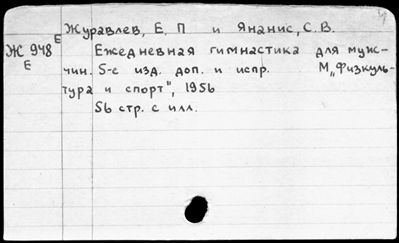 Журавлев, Е. П и Янанис, С. В.
Ж 948 Е Ежедневная гимнастика для муж-
Е чин. 5-е изд. доп. и испр. М „Физкуль-
тура и спорт", 1956
56 стр. с илл.